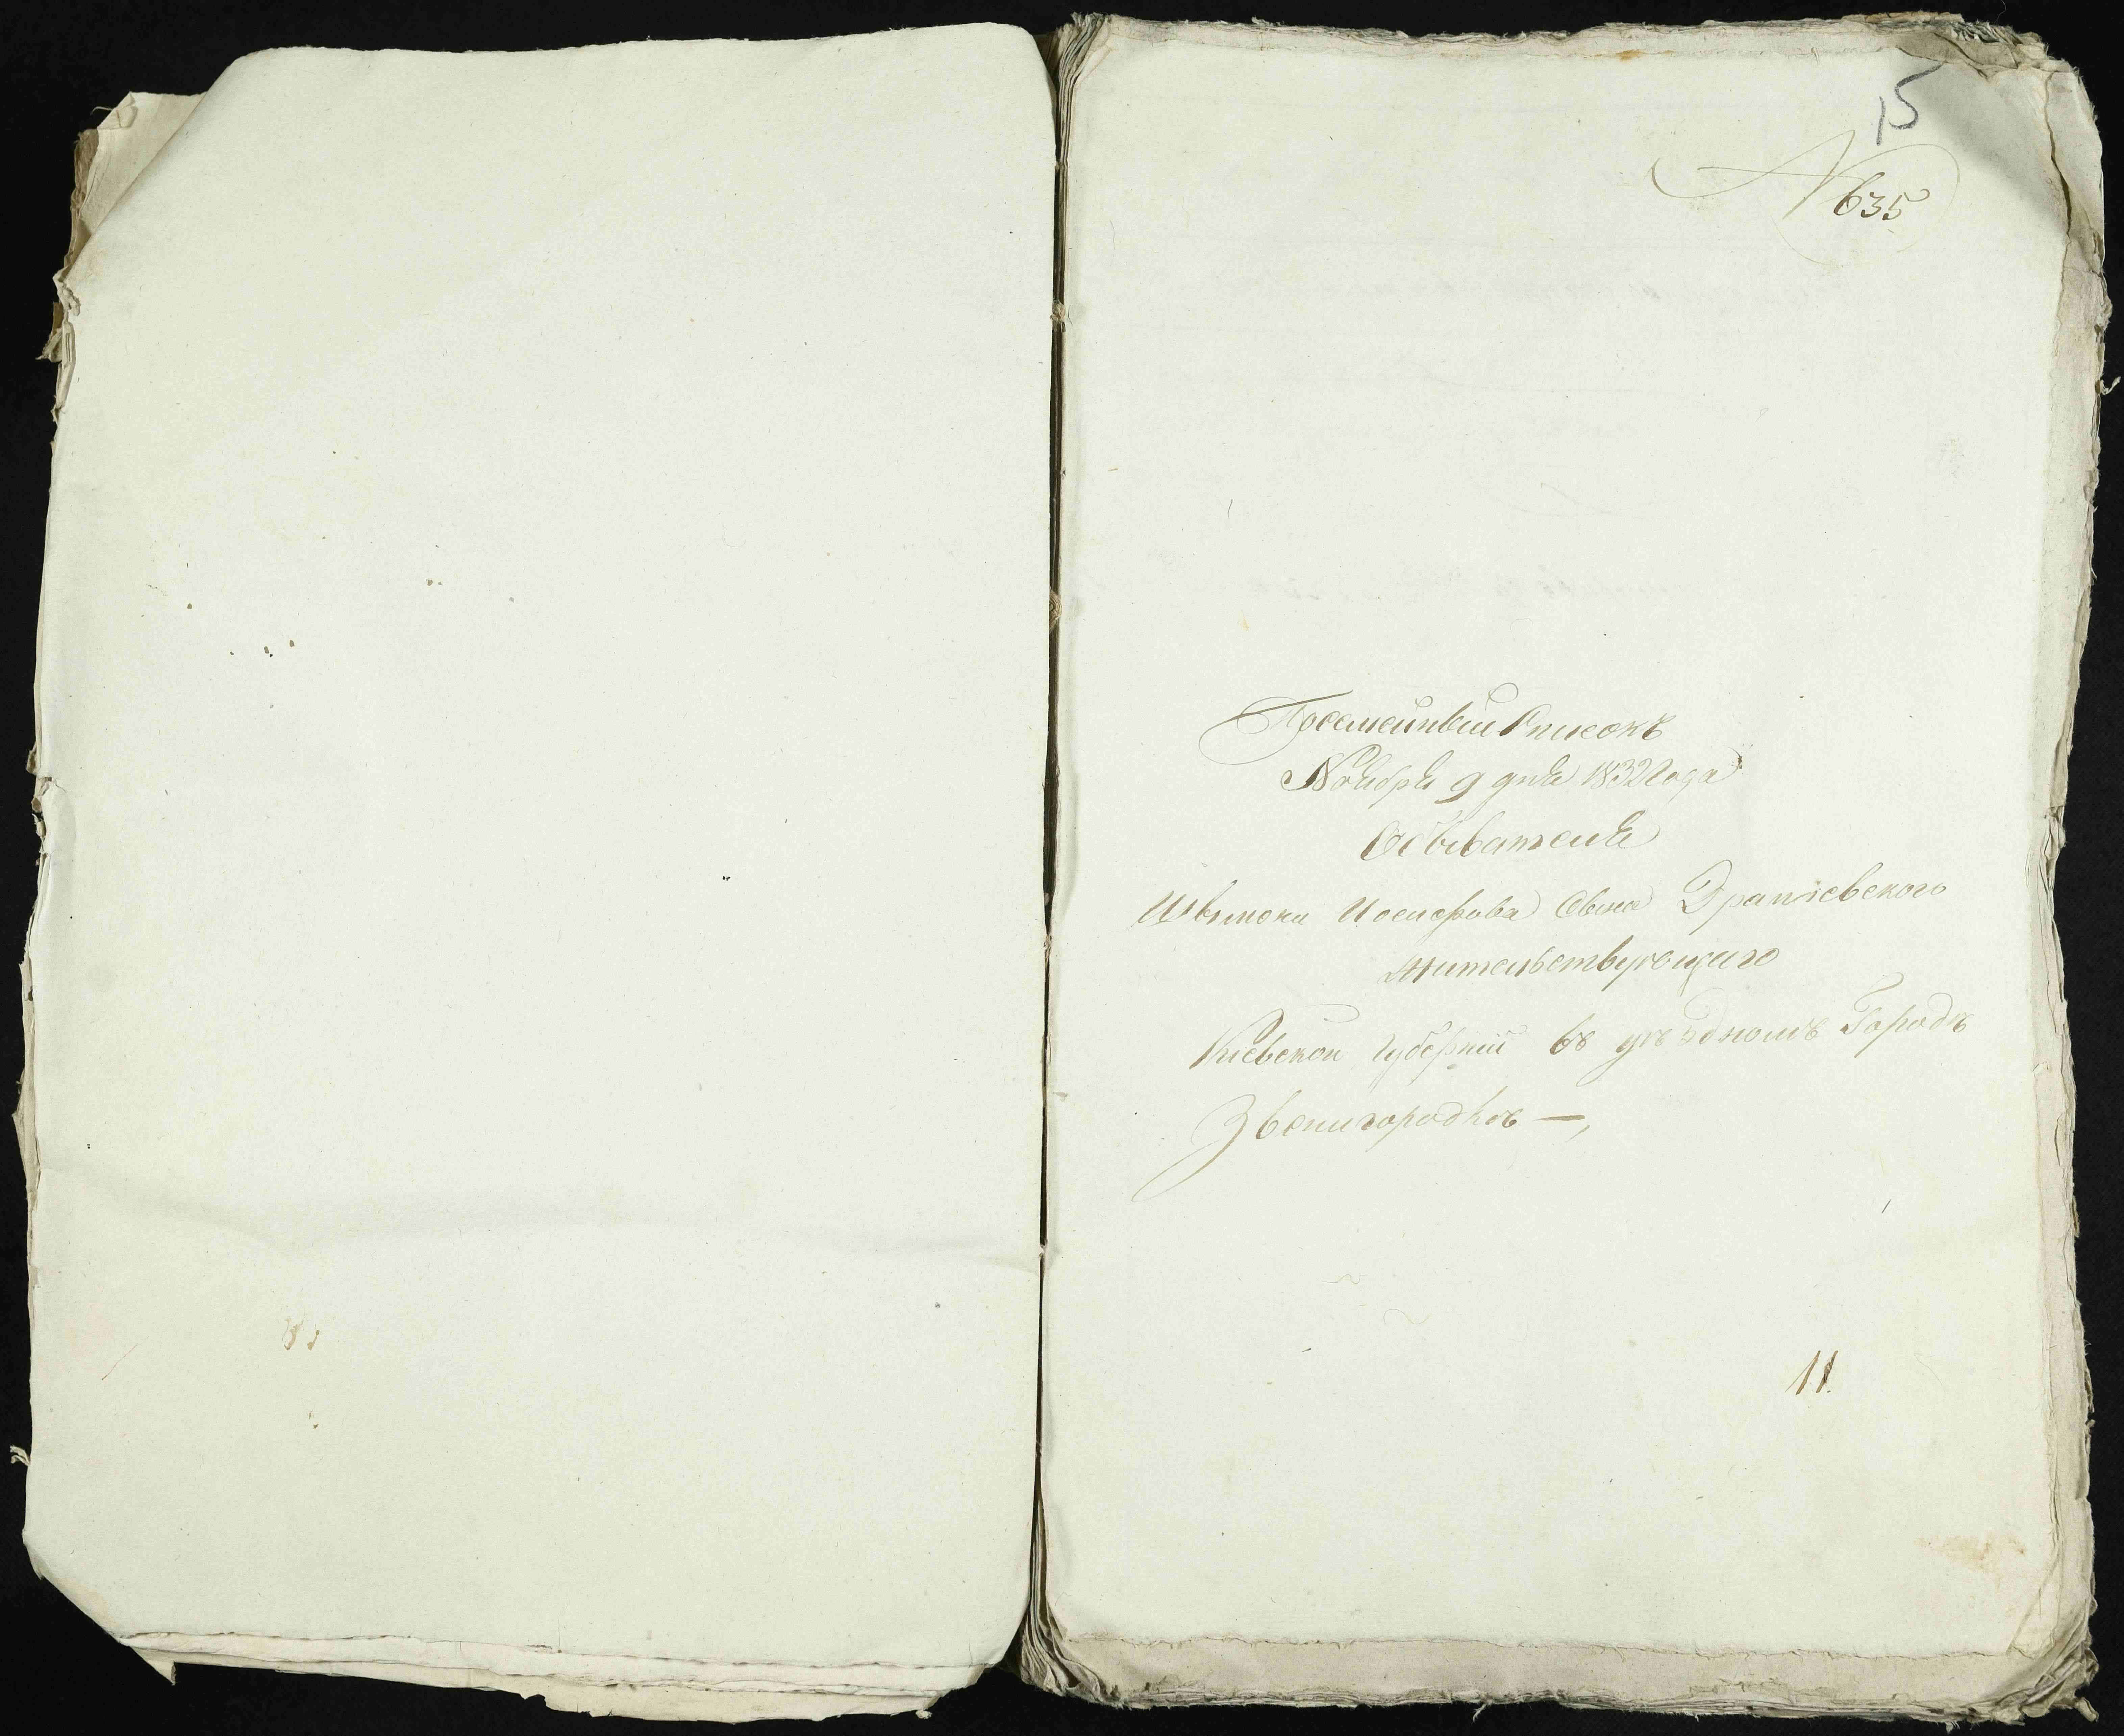 15
N 635
Посемейный Списокъ
Ноября 9 дня 1832 Года
Обывателя
Иосифова Сына
Жительствующаго
Кіевской Губерніи въ уѣздномъ Городѣ
Звенигородкѣ —,
11.